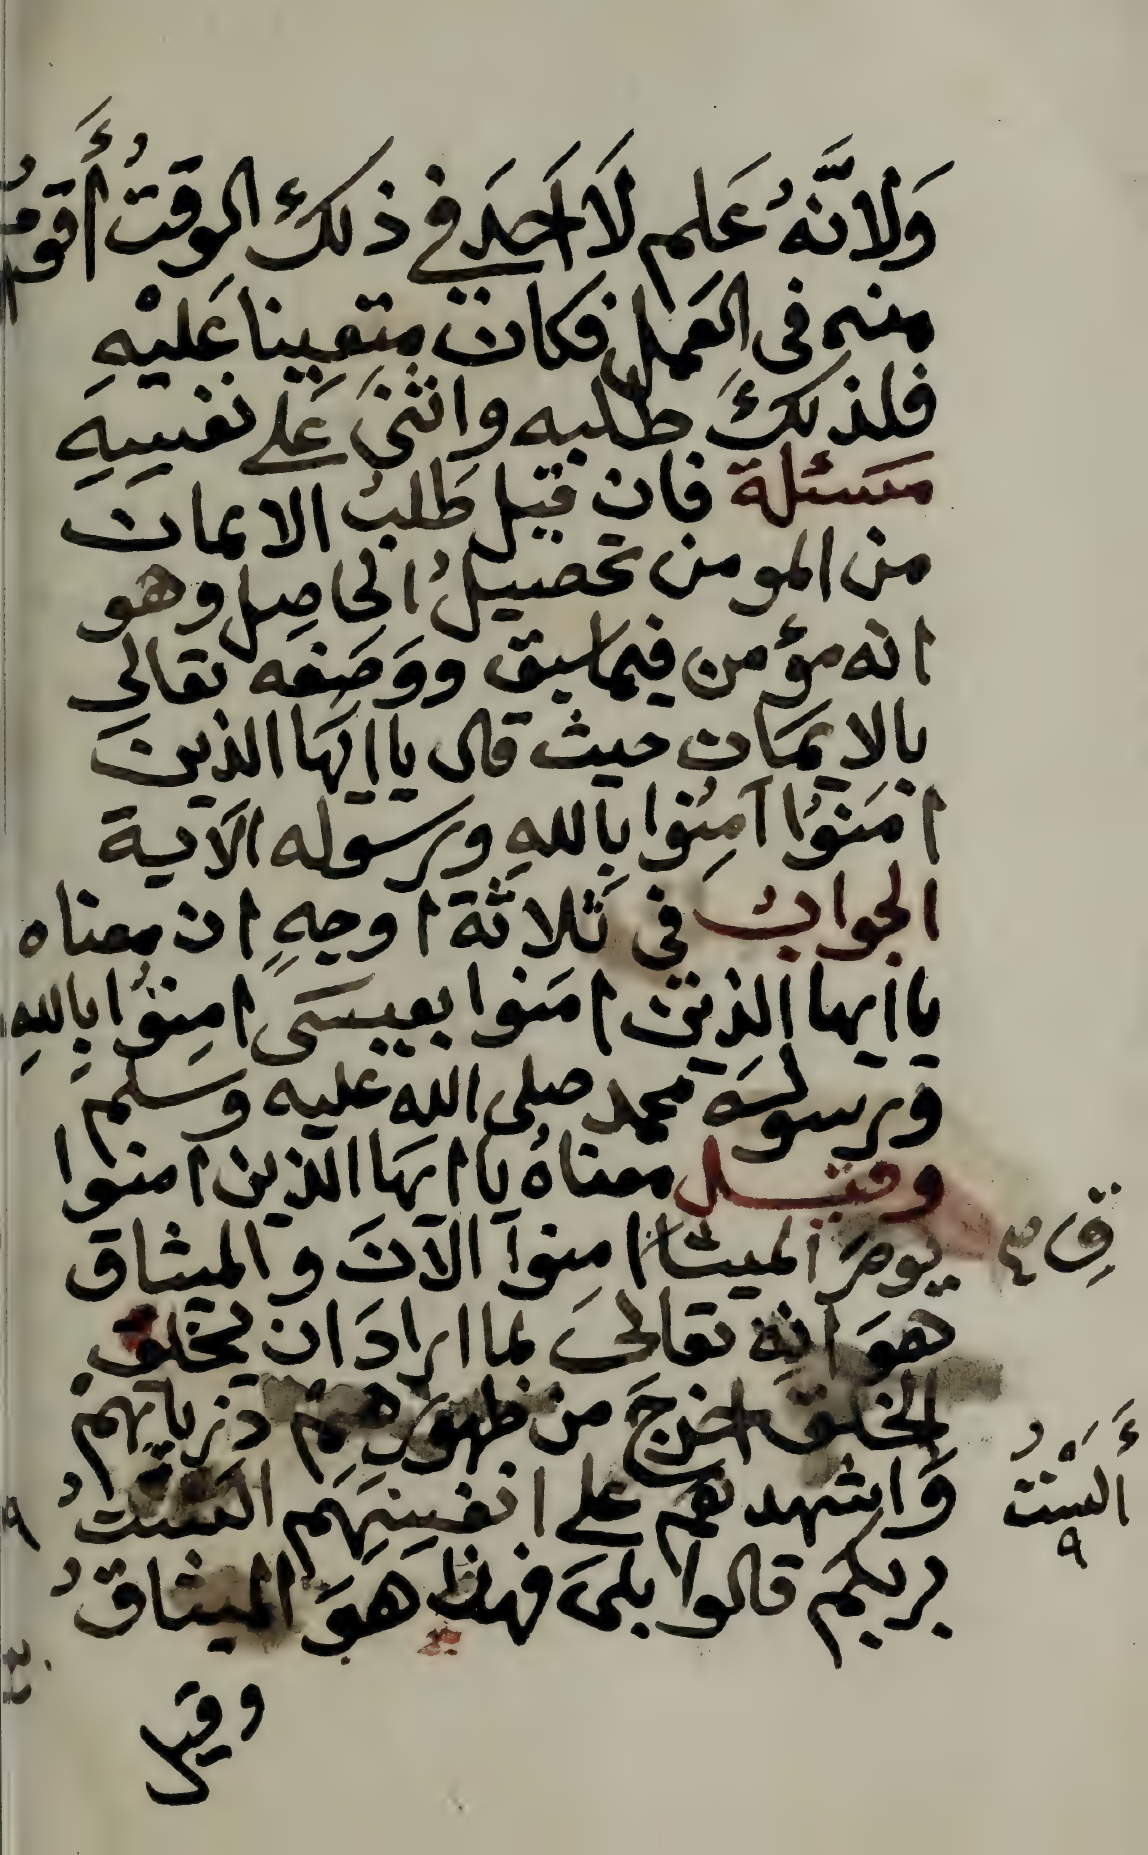 وَلِانَّهُ عَلم لَا اَحدَ في ذلكَ الوقتُ أَقومُ
منه فى العَمل فكان متعينا عَليْهِ
فلذلكَ طلبه واثنىَ عَلى نفسِهِ
مسئلة فان قيل طَلبُ الايمان
من المومن تحصيلُ الحاصِل وهو
انه مؤمن فيما سبق ووَصَفه تعالى
بالايمَان حيث قال ياايهَا الذينَ
امَنوُا آمِنُوا بِاللهِ ورسوله الآية
الجوابُ فى ثَلاثة اوجهِ ان معناه
ياايها الذين امَنوا بعيسَى امِنُوا بِاللهِ
ورسولهَ محمد صلى الله عليه وسَلم
وقيل معناهُ ياايهَا الذين امنوا
يومَ الميثا امنوا الآنَ والميثاق
ق صح
هوَ انه تعالىَ لما ارادَ ان يخلق
الخلق اخرجَ من ظهورهِم ذرياتِهمْ
وَاشهدهم على انفسِهِم الستُ
أَلَسْتُ
بربكم قالوا بلىَ فهذا هوَ الميثاقُ
وقيل